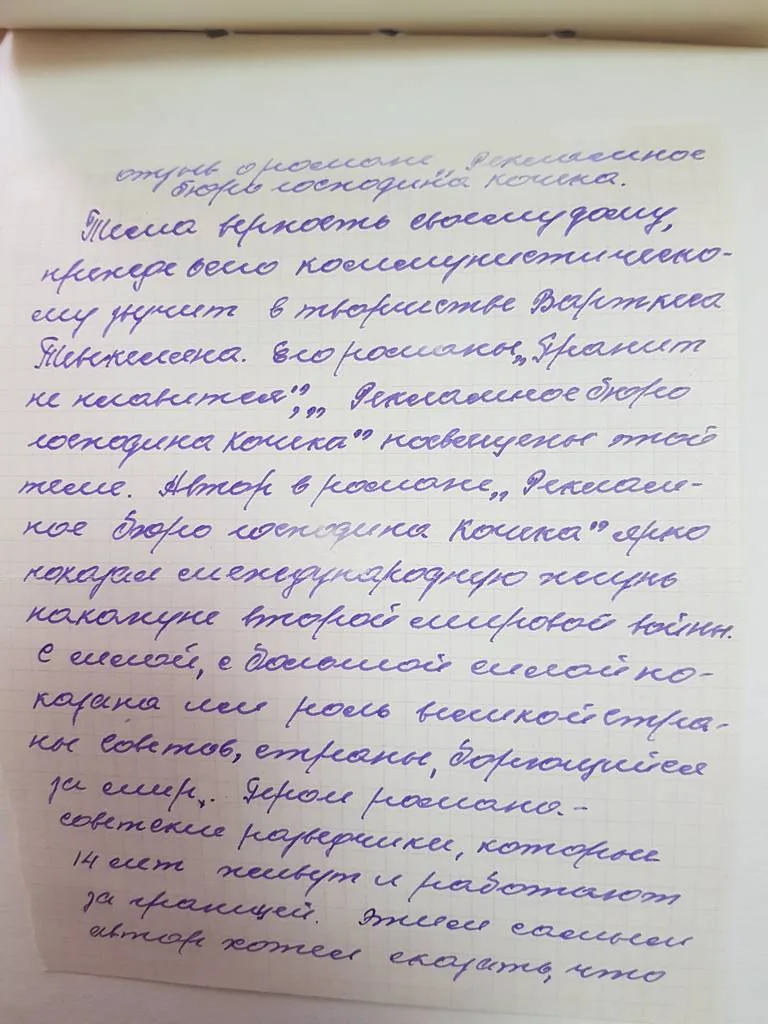 отзыв о романе „Рекламное
бюро господина Кочека.
Тема верность своему дому,
прежде всего коммунистическо-
му звучит в творчестве Варткеса
Тевекеляна. Его романы „Гранит
не плавится", „Рекламное бюро
господина Кочека" посвещены этой
теме. Автор в романе „Реклам-
ное бюро господина Кочека" ярко
показал международную жизнь
накануне второй мировой войны.
С силой, с большой силой по-
казана им роль великой стра-
ны советов, страны, борющийся
за мир. Герои романа -
советские разведчики, которые
14 лет живут и работают
за границей. Этим самым
автор хотел сказать, что